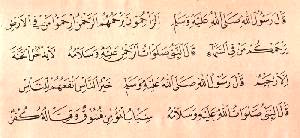 قال رسول الله صلى الله عليه وسلم الراحمون يرحمهم الرحمن ارحموا من في الأرض
يرحمكم من في السماء قال النبي صلوات الرحمن عليه وسلامه لا يدخل الجنة
إلا رحيم قال رسول الله صلى الله عليه وسلم خير الناس أنفعهم للناس
قال النبي صلوات الله عليه وسلامه سباب المؤمن فسوق وقتاله كفر